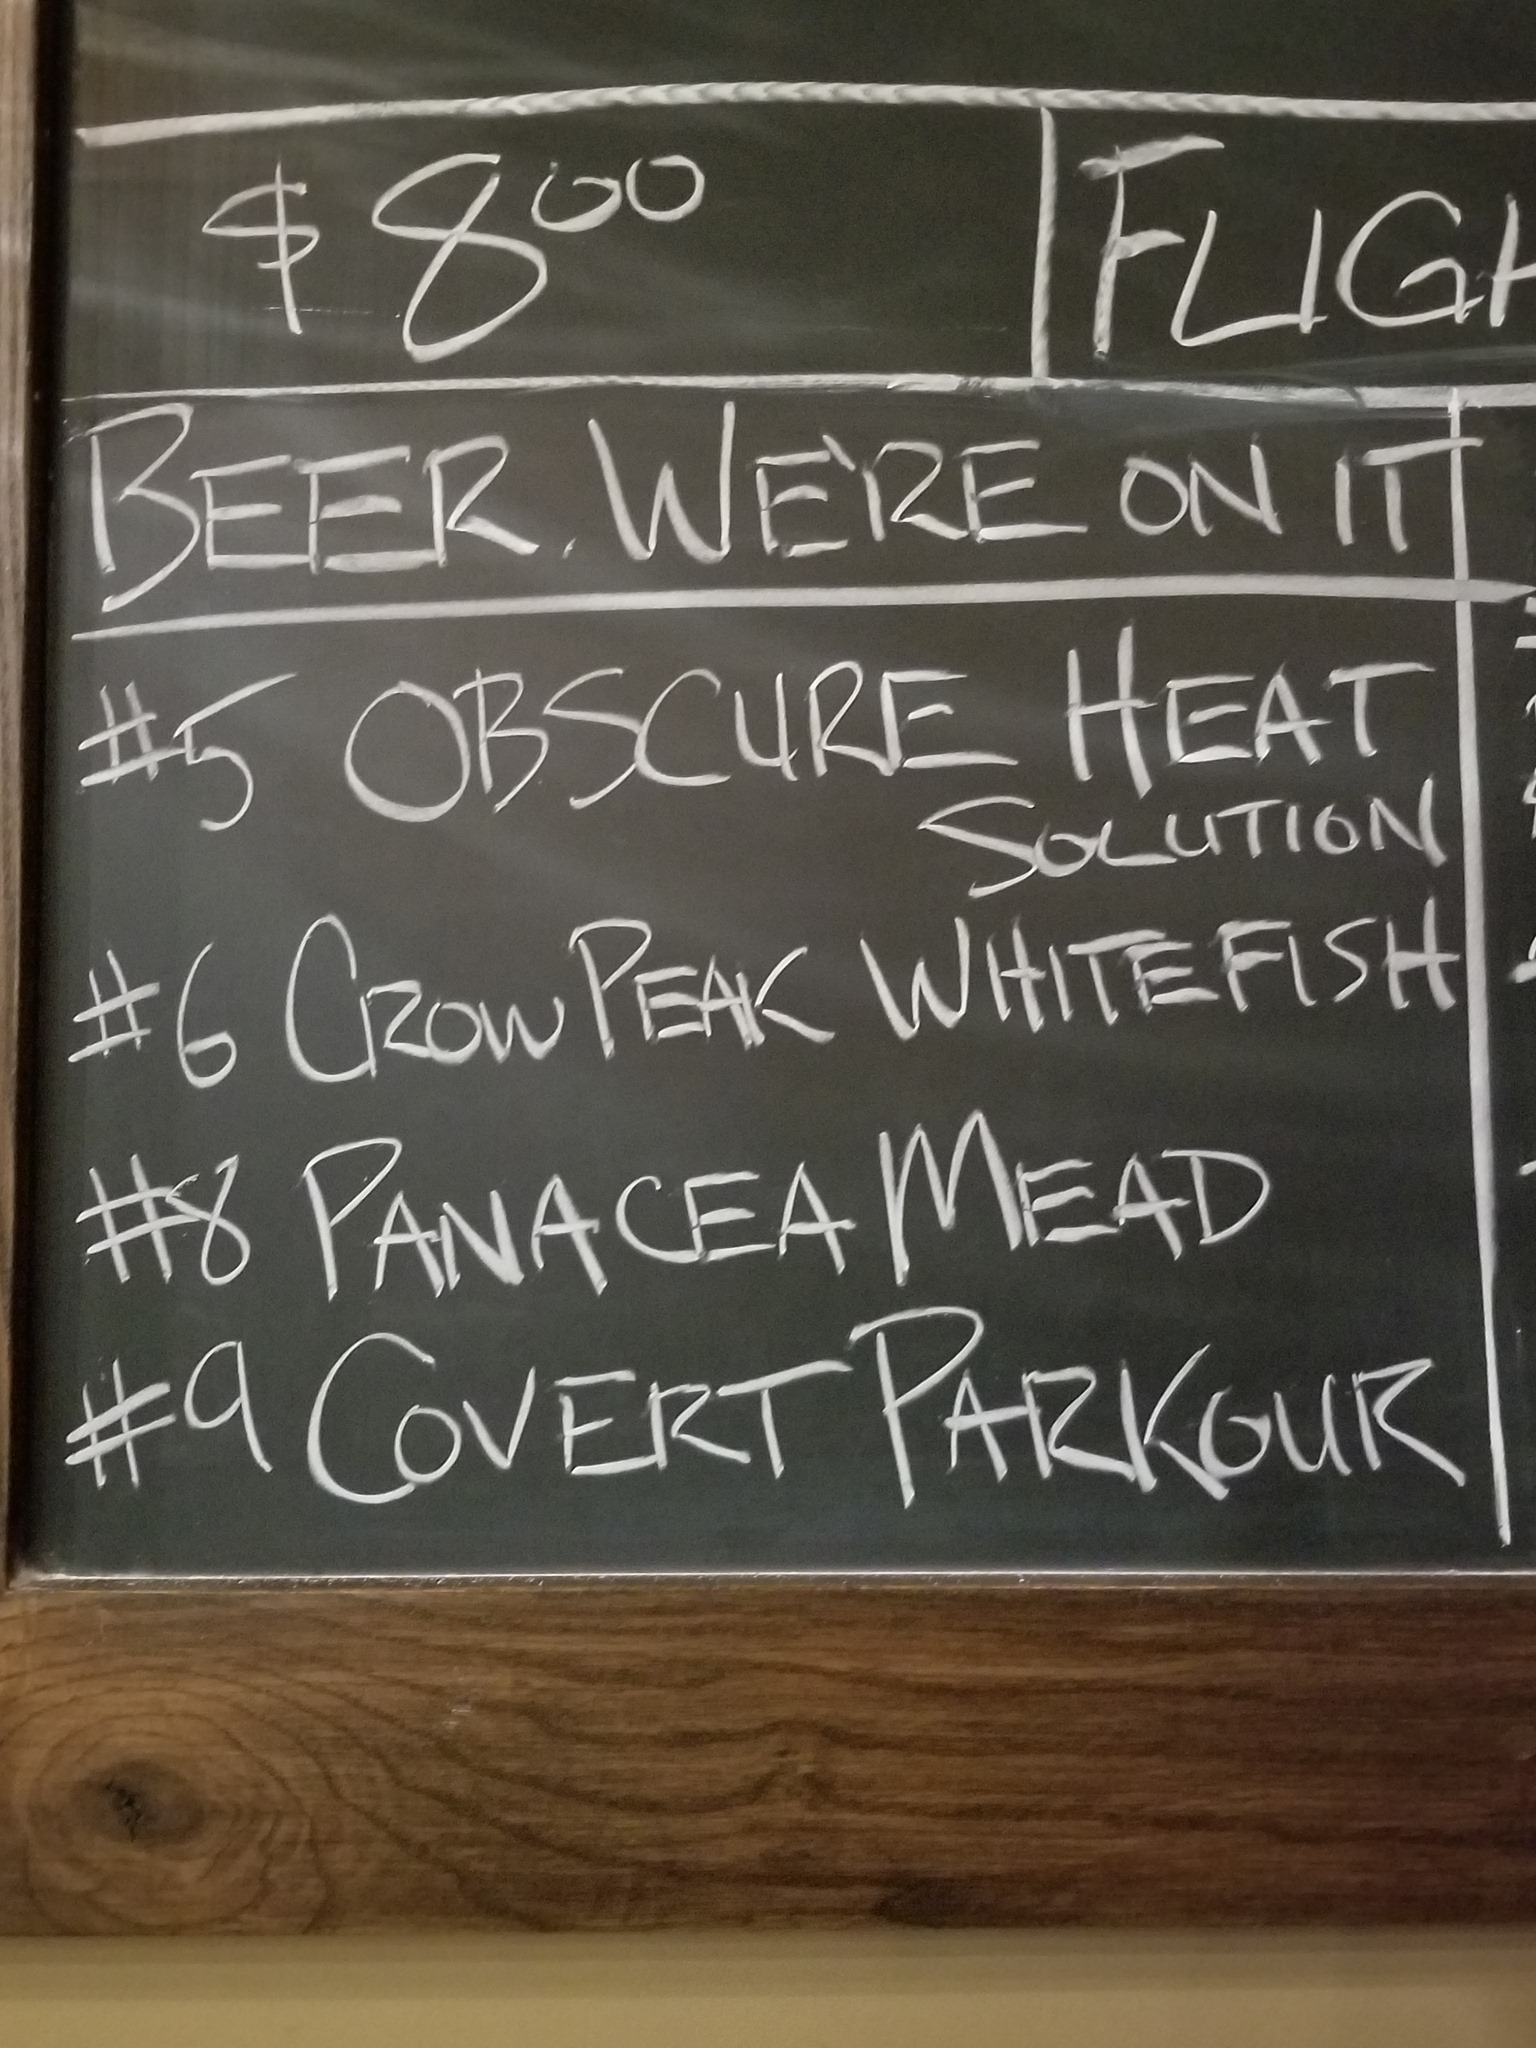 $800
FLIGH
BEER. WE'RE ON IT
#5 OBSCURE HEAT
SOLUTION
#6 CROW PEAK WHITEFISH
#8 PANACEA MEAD
#9 COVERT PARKOUR